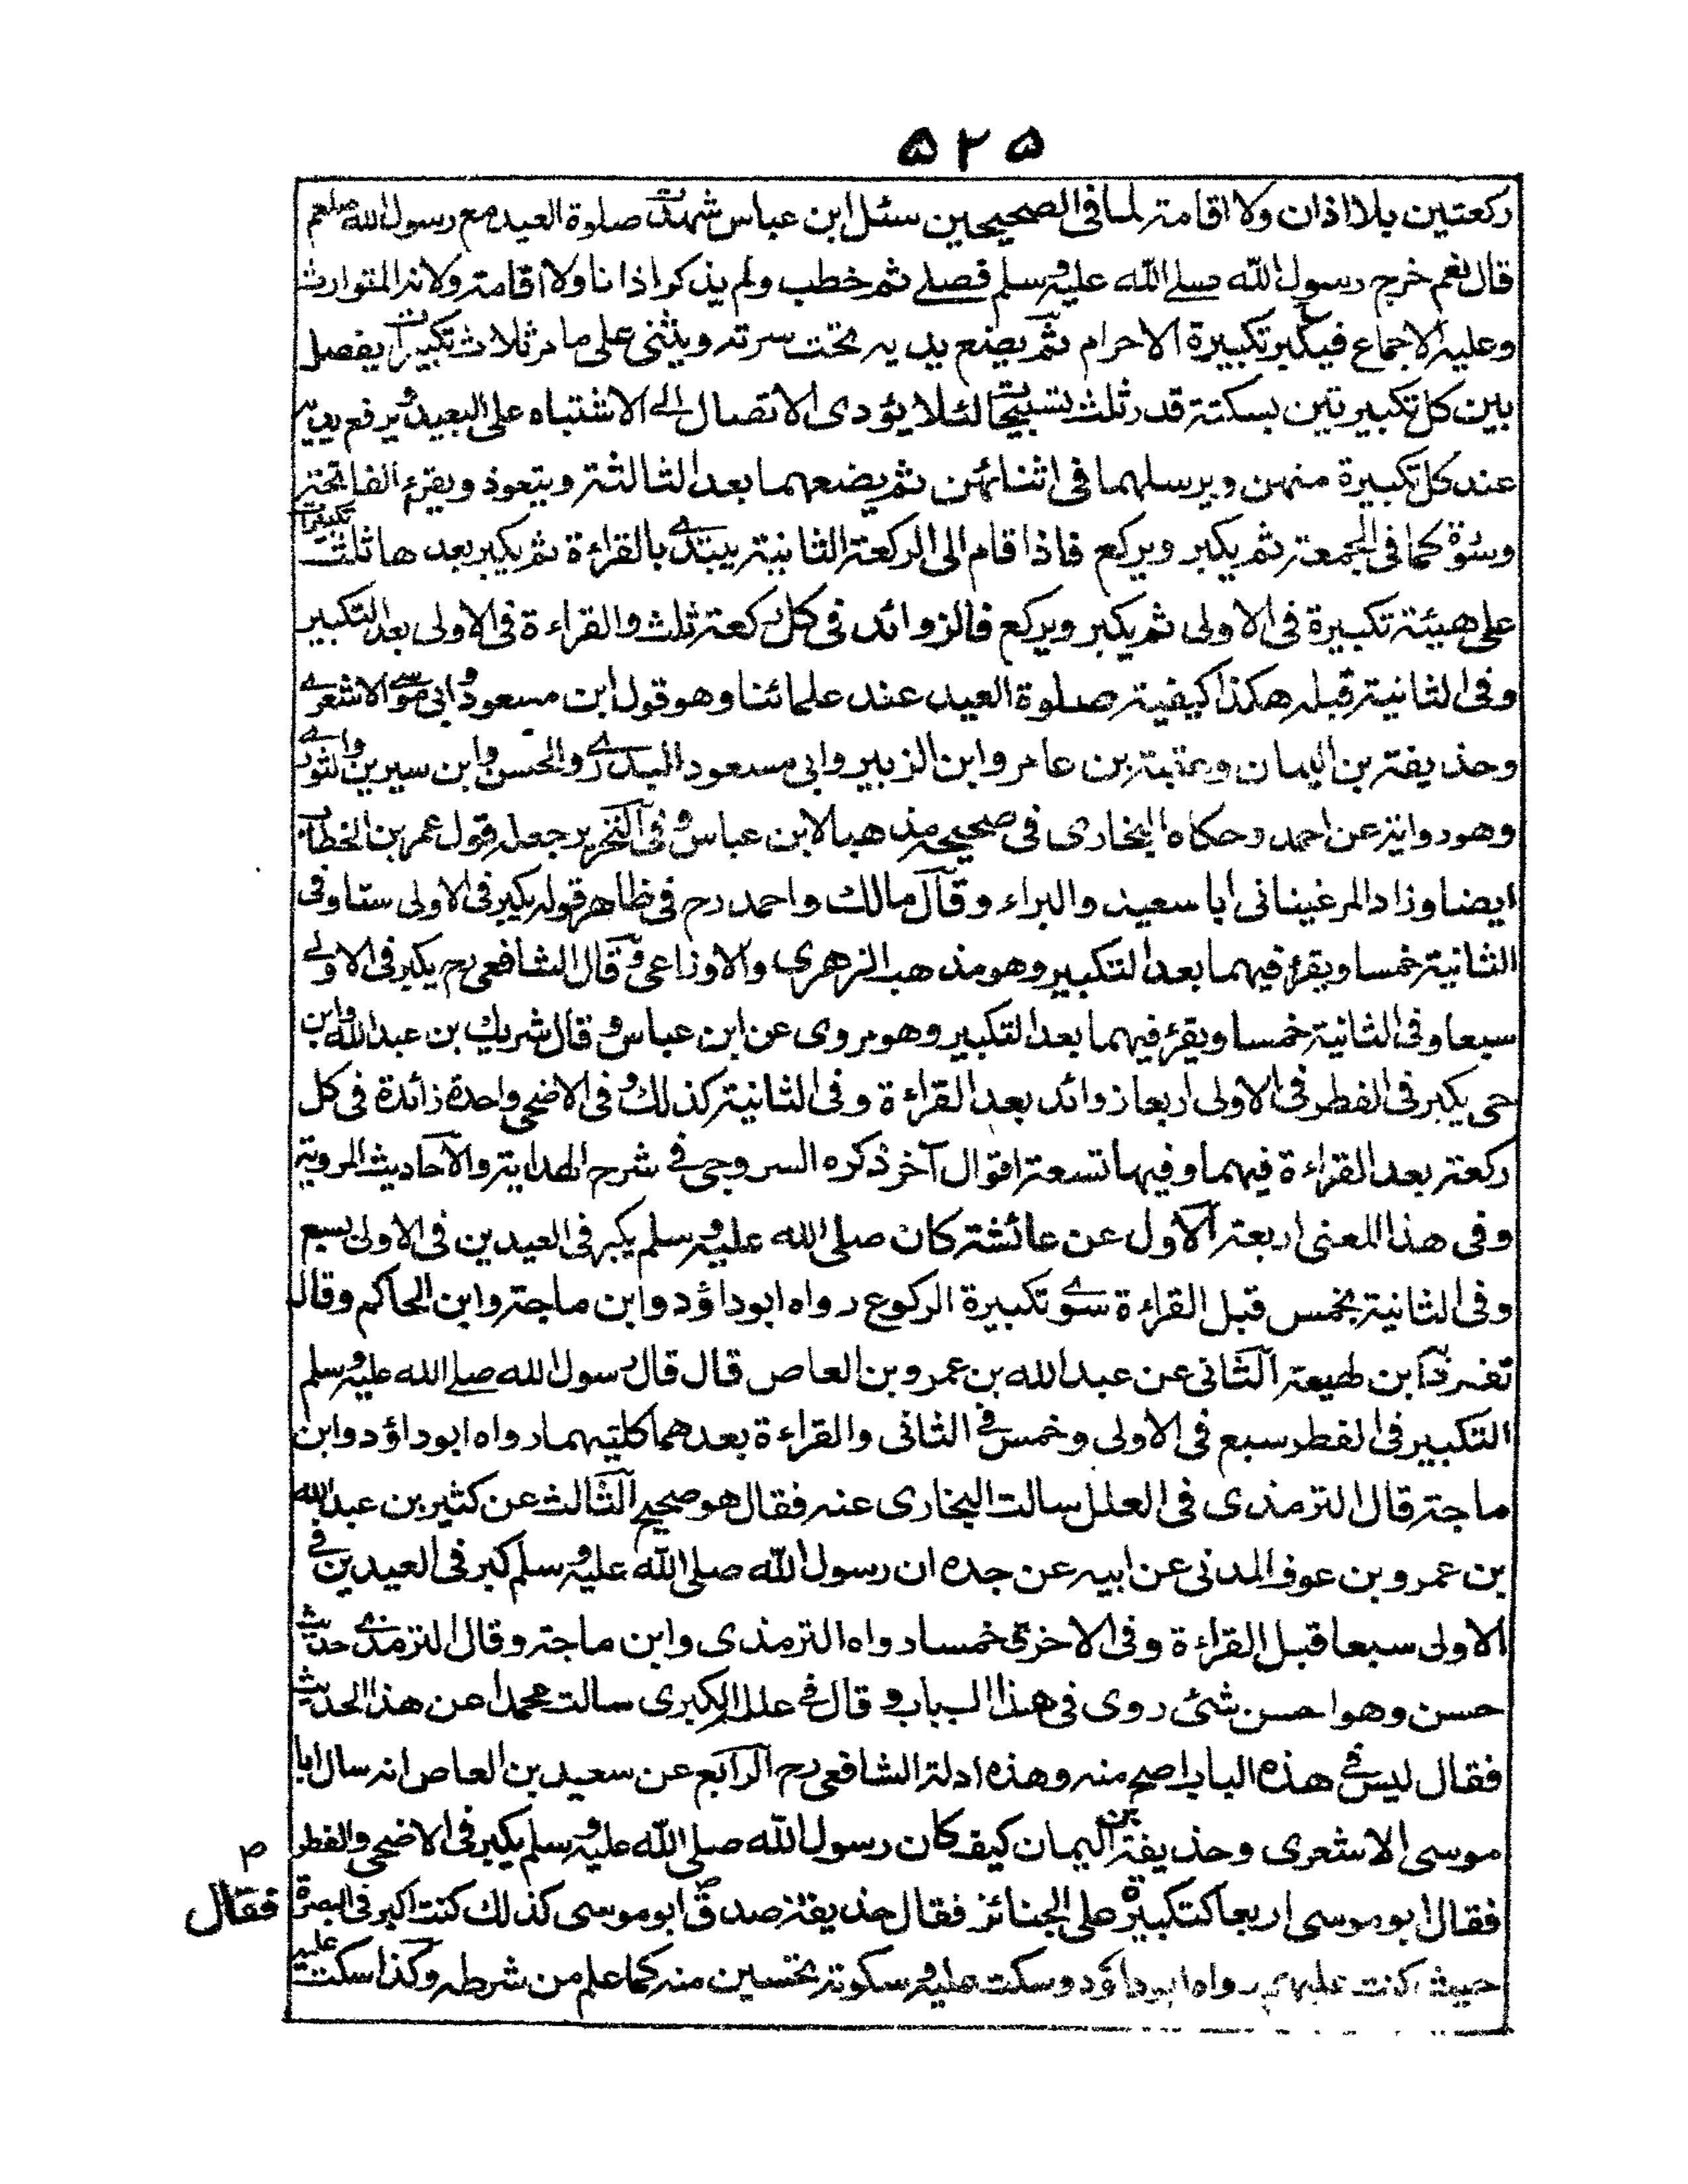 ۵۲۵
ركعتين بلا اذان ولا اقامة لما فى الصحيحين سئل ابن عباس شهدت صلوة العيد مع رسول الله صلعم
قال نعم خرج رسول الله صلے الله عليه وسلم فصلے ثم خطب ولم يذكر اذانا ولا اقامة ولانه المتوارث
وعليه الاجماع فيكبر تكبيرة الاحرام ثم يضع يديه تحت سرته ويثنى على ما مر ثلاث تكبيرات يفصل
بين كل تكبيرتين بسكتة قدر ثلث تسبيحات لئلا يؤدى الاتصال الے الاشتباه على البعيد ويرفع يديه
عند كل تكبيرة منهن ويرسلهما فى اثنائهن ثم يضعهما بعد الثالثة ويتعوذ ويقرء الفاتحة
وسورة كما فى الجمعة ثم يكبر ويركع فاذا قام الى الركعة الثانية يبتدے بالقراءة ثم يكبر بعدها ثلث تكبيرات
على هيئة تكبيرة فى الاولى ثم يكبر ويركع فالزوائد فى كل ركعة ثلث والقراءة فى الاولى بعد التكبير
وفى الثانية قبله هكذا كيفية صلوة العيد عند علمائنا وهو قول ابن مسعود وابى موسے الاشعرے
وحذيفة بن اليمان وعقبة بن عامر وابن الزبير وابى مسعود البدرے والحسن وابن سيرين والثورے
وهو رواية عن احمد وحكاه البخارى فى صحيحه مذهبا لابن عباس وفى التحرير جعله قول عمر بن الخطاب
ايضا وزاد المرغينانى ابا سعيد والبراء وقال مالك واحمد رح فى ظاهر قوله يكبر فى الاولى ستا وفى
الثانية خمسا ويقرء فيهما بعد التكبير وهو مذهب الزهرى والاوزاعى وقال الشافعى رح يكبر فى الاولے
سبعا وفى الثانية خمسا ويقرء فيهما بعد التكبير وهو مروى عن ابن عباس وقال شريك بن عبد الله وابن
حى يكبر فى الفطر فى الاولى اربعا زوائد بعد القراءة وفى الثانية كذلك وفى الاضحى واحدة زائدة فى كل
ركعة بعد القراءة فيهما وفيها تسعة اقوال آخر ذكره السروجى فے شرح الهداية والآحاديث المروية
وفى هذا المعنى اربعة آلاول عن عائشة كان صلى الله عليه وسلم يكبر فى العيدين فى الاولى بسبع
وفى الثانية بخمس قبل القراءة سوے تكبيرة الركوع رواه ابو داؤد وابن ماجة وابن الحاكم وقال
تفرد به ابن لهيعة آلثانى عن عبد الله بن عمرو بن العاص قال قال رسول الله صلے الله عليه وسلم
التكبير فى الفطر سبع فى الاولى وخمس فے الثانى والقراءة بعدهما كلتيهما رواه ابو داؤد وابن
ماجة قال الترمذى فى العلل سالت البخارى عنه فقال هو صحيح آلثالث عن كثير بن عبد الله
بن عمرو بن عوف المدنى عن ابيه عن جده ان رسول الله صلى الله عليه وسلم كبر فى العيدين فے
الاولى سبعا قبل القراءة وفى الاخرى خمسا رواه الترمذى وابن ماجة وقال الترمذے حديث
حسن وهو احسن شئ روى فى هذا الباب و قال فے علله الكبرى سالت محمدا عن هذا الحديث
فقال ليس فے هذه الباب اصح منه وهذه ادلة الشافعى رح آلرابع عن سعيد بن العاص انه سال ابا
موسى الاشعرى وحذيفة بن اليمان كيف كان رسول الله صلى الله عليه وسلم يكبر فى الاضحى والفطر
فقال ابو موسى اربعا كتكبيرة على الجنائز فقال حذيفة صدق ابو موسى كذلك كنت اكبر فى البصرة
حيث كنت عليهم رواه ابو داؤد وسكت عليه وسكوته تحسين منه كما علم من شرطه وكذا سكت عليه
فقال